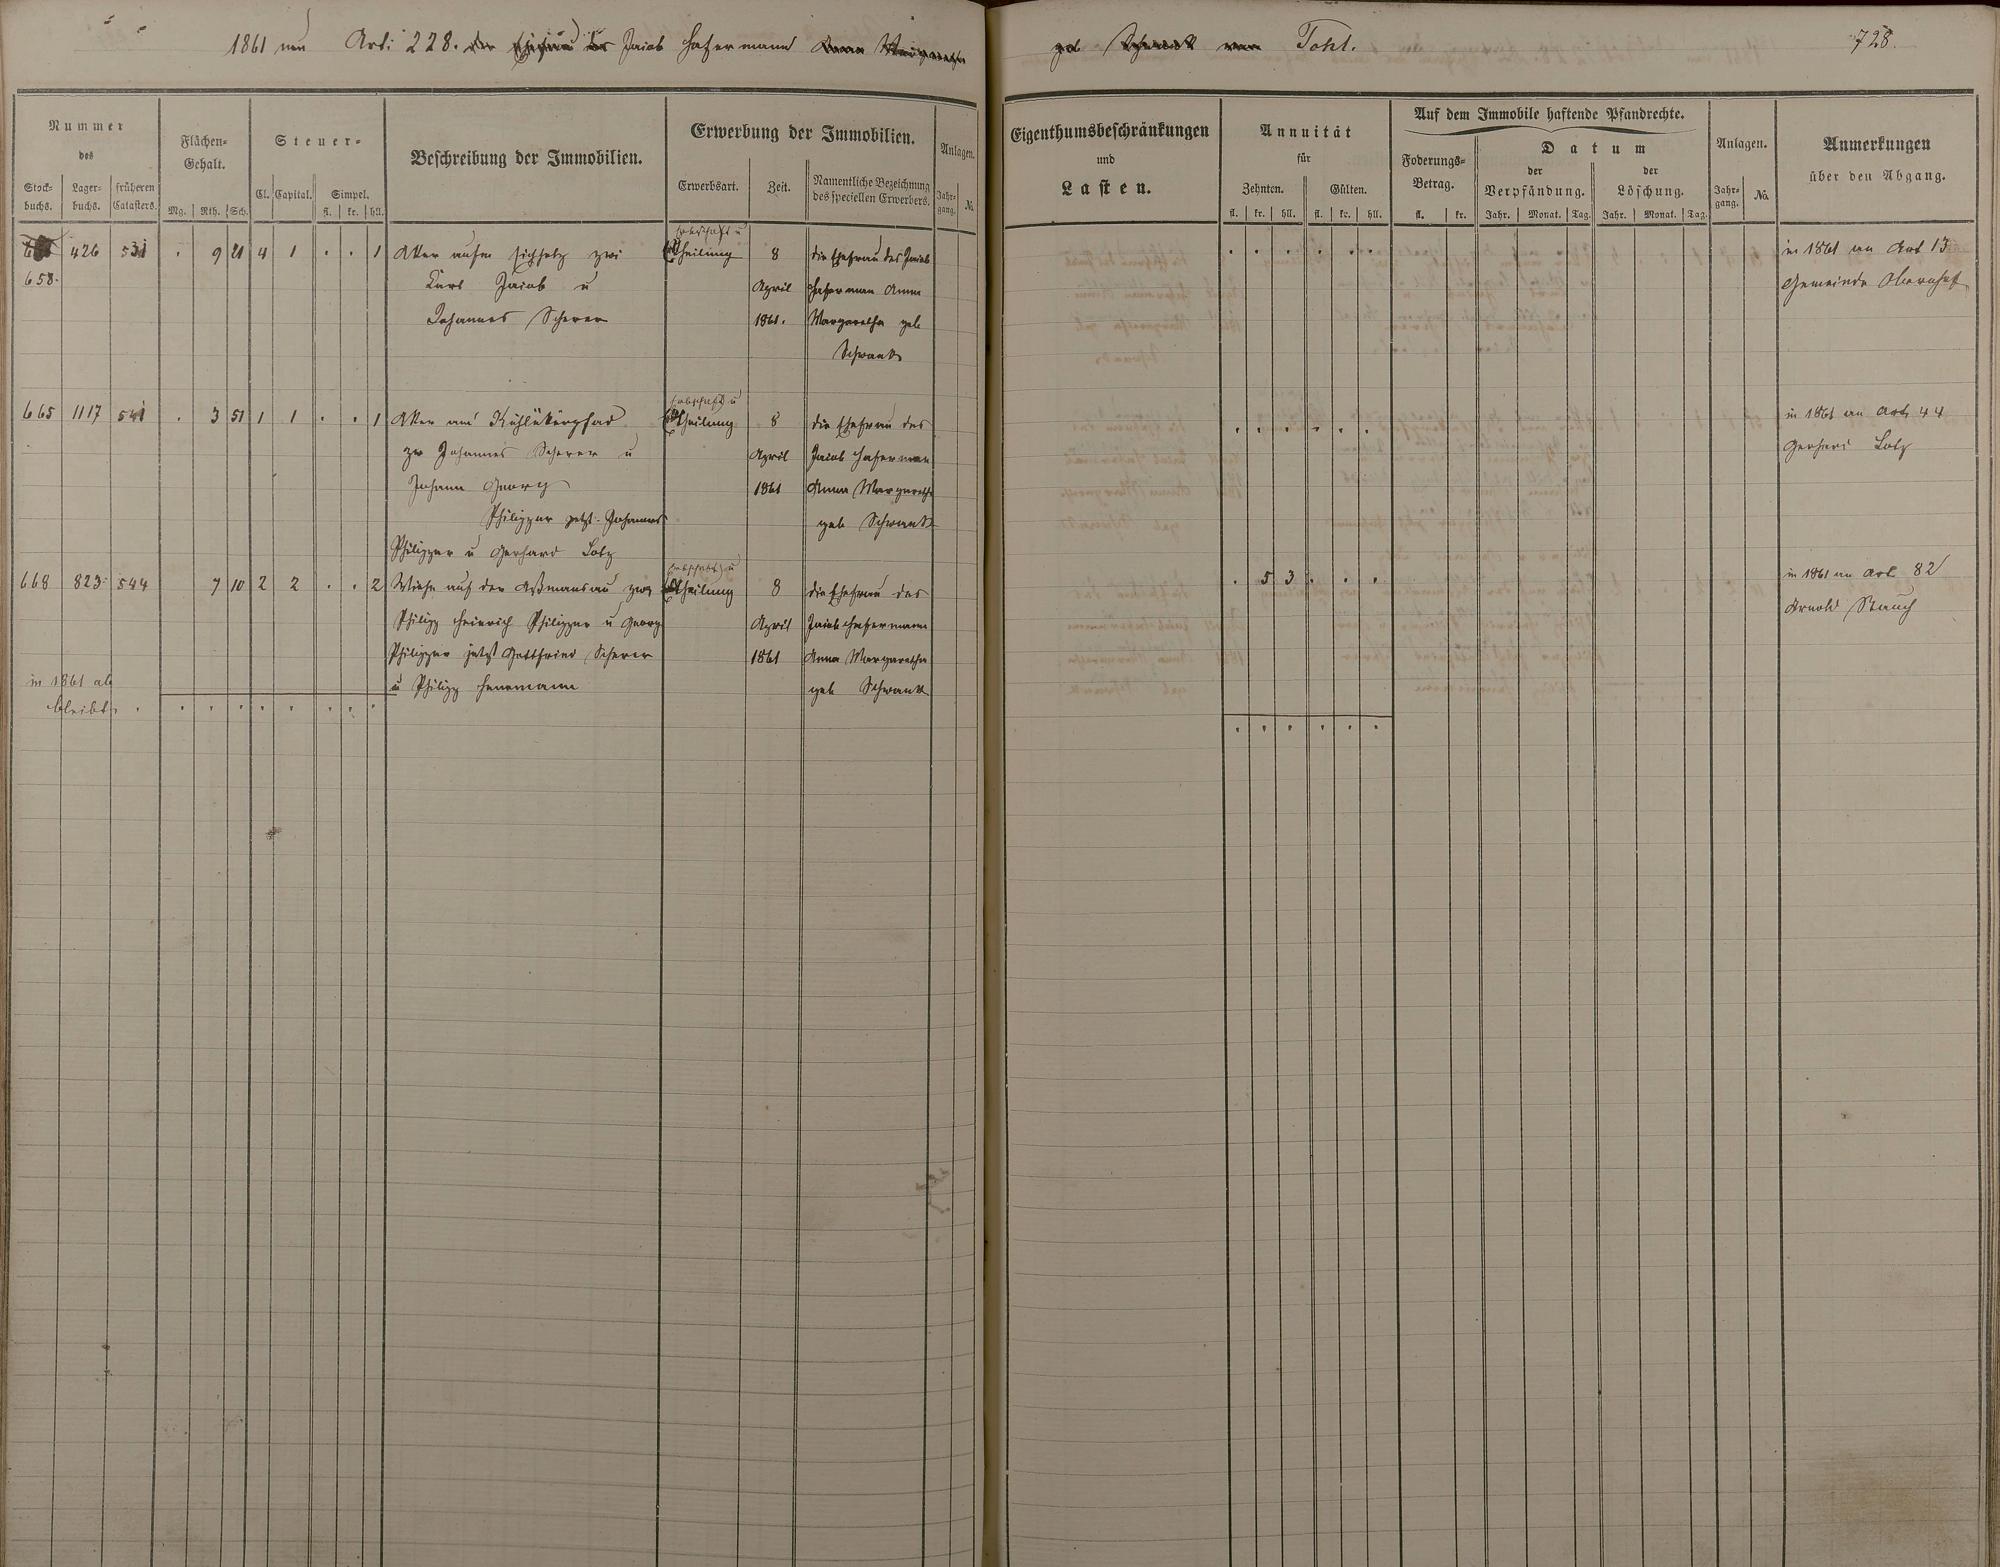 1861 neu Arti 228. der Ehefrau des Jacob Hafermann Anna Margaretha
geb Schwank von Dohl. 728.
Nummer
des
Stock-
buchs. Lager-
buchs. früheren
Catasters.
Flächen-
Gehalt.
Mg. Rth. Sch.
Steuer-
Cl. Capital. Simpel.
fl. kr. hll.
Beschreibung der Immobilien.
Erwerbung der Immobilien.
Erwerbsart. Zeit. Namentliche Bezeichnung
des speciellen Erwerbers.
Anlagen.
Jahr-
gang. No.
Eigenthumsbeschränkungen
und
Lasten.
Annuität
für
Zehnten. Gülten.
fl. kr. hll. fl. kr. hll.
Auf dem Immobile haftende Pfandrechte.
Foderungs-
Betrag.
fl. kr.
Datum
der
Verpfändung.
Jahr. Monat. Tag.
der
Löschung.
Jahr. Monat. Tag.
Anlagen.
Jahr-
gang. No.
Anmerkungen
über den Abgang.
Erbschaft u
426 531 . 9 21 4 1 . . 1 Acker aufm zwi Theilung 8 die Ehefrau des Jacob . . . . . . in 1861 an Art 13
658. Jacob u April Haferman Anna Gemeinde Obernhof
Johannes Scherer 1861. Margaretha geb
Schwank
Erbschaft u
665 1117 541 . 3 51 1 1 . . 1 Acker am Theilung 8 die Ehefrau des . . . . . . in 1861 an Art 44
zw Johannes Scherer u April Jacob Haferman Gerhard Lotz
Johann Georg 1861 Anna Margaretha
Philippar jetzt Johannes geb Schwank
Philippar u Gerhard Lotz
Erbschaft u
668 823 544 7 10 2 2 . . 2 Wiese auf der Aßmansau zw Theilung 8 die Ehefrau des . 5 3 . . . in 1861 an Art 82
Philipp Heinrich Philippar u Georg April Jacob Hafermann Arnold Stauch
Philippar jetzt Gottfried Scherer 1861 Anna Margaretha
in 1861 ab u Philipp geb Schwank
bleibt . . . . . . . . . . . . . . .